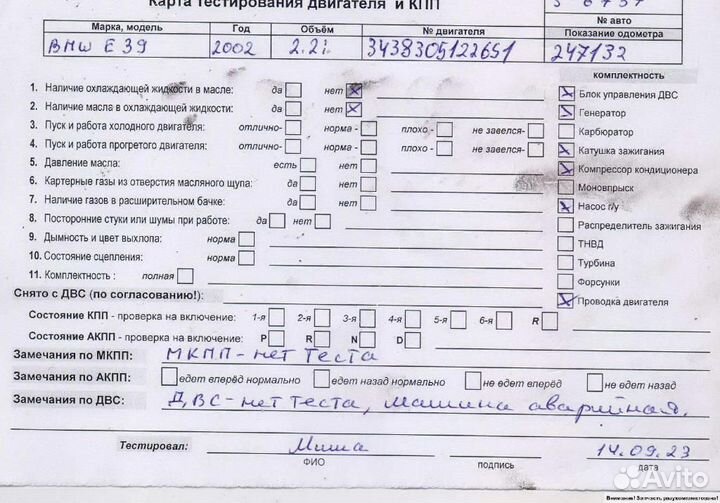 Карта тестирования двигателя и КПП
№ авто
Марка, модель Год Объём № двигателя Показание одометра
BMW E39 2002 2.2i 3438305122651 247132
комплектность
1. Наличие охлаждающей жидкости в масле: да нет X
Блок управления ДВС
2. Наличие масла в охлаждающей жидкости: да нет X
Генератор
3. Пуск и работа холодного двигателя: отлично- норма - плохо - не завелся-
Карбюратор
4. Пуск и работа прогретого двигателя: отлично- норма - плохо - не завелся-
Катушка зажигания
5. Давление масла: есть нет
Компрессор кондиционера
6. Картерные газы из отверстия масляного щупа: да нет
Моновпрыск
7. Наличие газов в расширительном бачке: да нет
Насос г/у
8. Посторонние стуки или шумы при работе: да нет
Распределитель зажигания
9. Дымность и цвет выхлопа: норма
ТНВД
10. Состояние сцепления: норма
Турбина
11. Комплектность : полная
Форсунки
Снято с ДВС (по согласованию!):
Проводка двигателя
Состояние КПП - проверка на включение: 1-я 2-я 3-я 4-я 5-я 6-я R
Состояние АКПП - проверка на включение: P R N D
Замечания по МКПП: МКПП-нет теста
Замечания по АКПП: едет вперёд нормально едет назад нормально не едет вперёд не едет назад
Замечания по ДВС: ДВС-нет теста, машина аварийная.
Тестировал: Миша 14.09.23
ФИО подпись дата
Avito
Внимание! Запчасть разукомплектована!